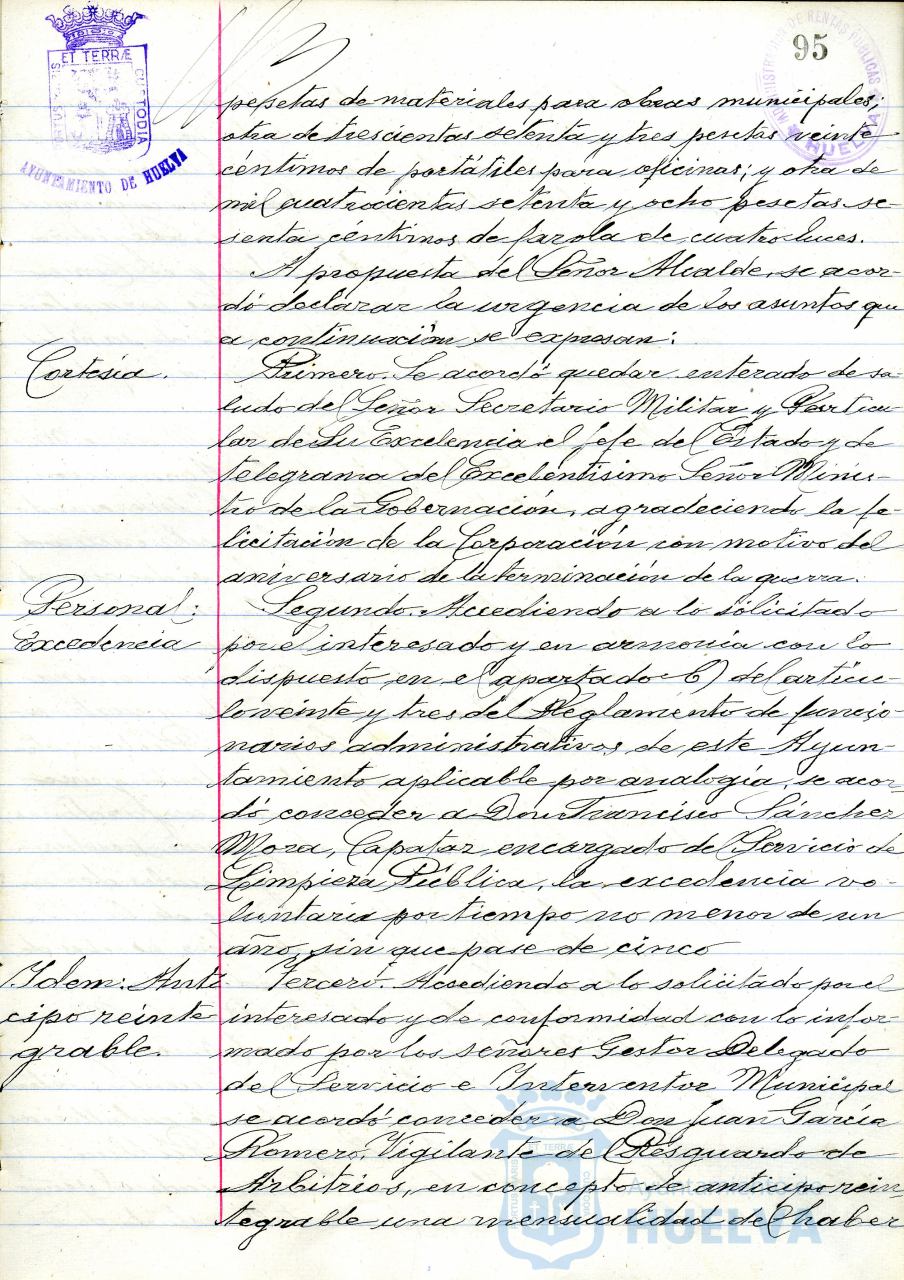 95
ET TERRÆ
CUSTODIA
AYUNTAMIENTO DE HUELVA
ADMINISTRACION DE RENTAS PUBLICAS
HUELVA
pesetas de materiales para obras municipales;
otra de trescientas setenta y tres pesetas veinte
céntimos de portátiles para oficinas; y otra de
mil cuatrocientas setenta y ocho pesetas se-
senta céntimos de farola de cuatro luces.
A propuesta del Señor Alcalde, se acor-
dó declarar la urgencia de los asuntos que
a continuación se expresan:
Cortesía.
Primero. Se acordó quedar enterado de sa-
ludo del Señor Secretario Militar y Particu-
lar de Su Excelencia el Jefe del Estado y de
telegrama del Excelentísimo Señor Minis-
tro de la Gobernación, agradeciendo la fe-
licitación de la Corporación con motivo del
aniversario de la terminación de la guerra.
Personal:
Excedencia
Segundo. Accediendo a lo solicitado
por el interesado y en armonía con lo
dispuesto en el apartado C) del artícu-
lo veinte y tres del Reglamento de funcio-
narios administrativos de este Ayun-
tamiento aplicable por analogía, se acor-
dó conceder a Don Francisco Sánchez
Mora, Capataz encargado del Servicio de
Limpieza Pública, la excedencia vo-
luntaria por tiempo no menor de un
año, sin que pase de cinco
Idem: Anti-
cipo reinte
grable.
Tercero. Accediendo a lo solicitado por el
interesado y de conformidad con lo infor-
mado por los señores Gestor Delegado
del Servicio e Interventor Municipal
se acordó conceder a Don Juan García
Romero, Vigilante del Resguardo de
Arbitrios, en concepto de anticipo rein-
tegrable una mensualidad del haber
Ayuntamiento de
HUELVA